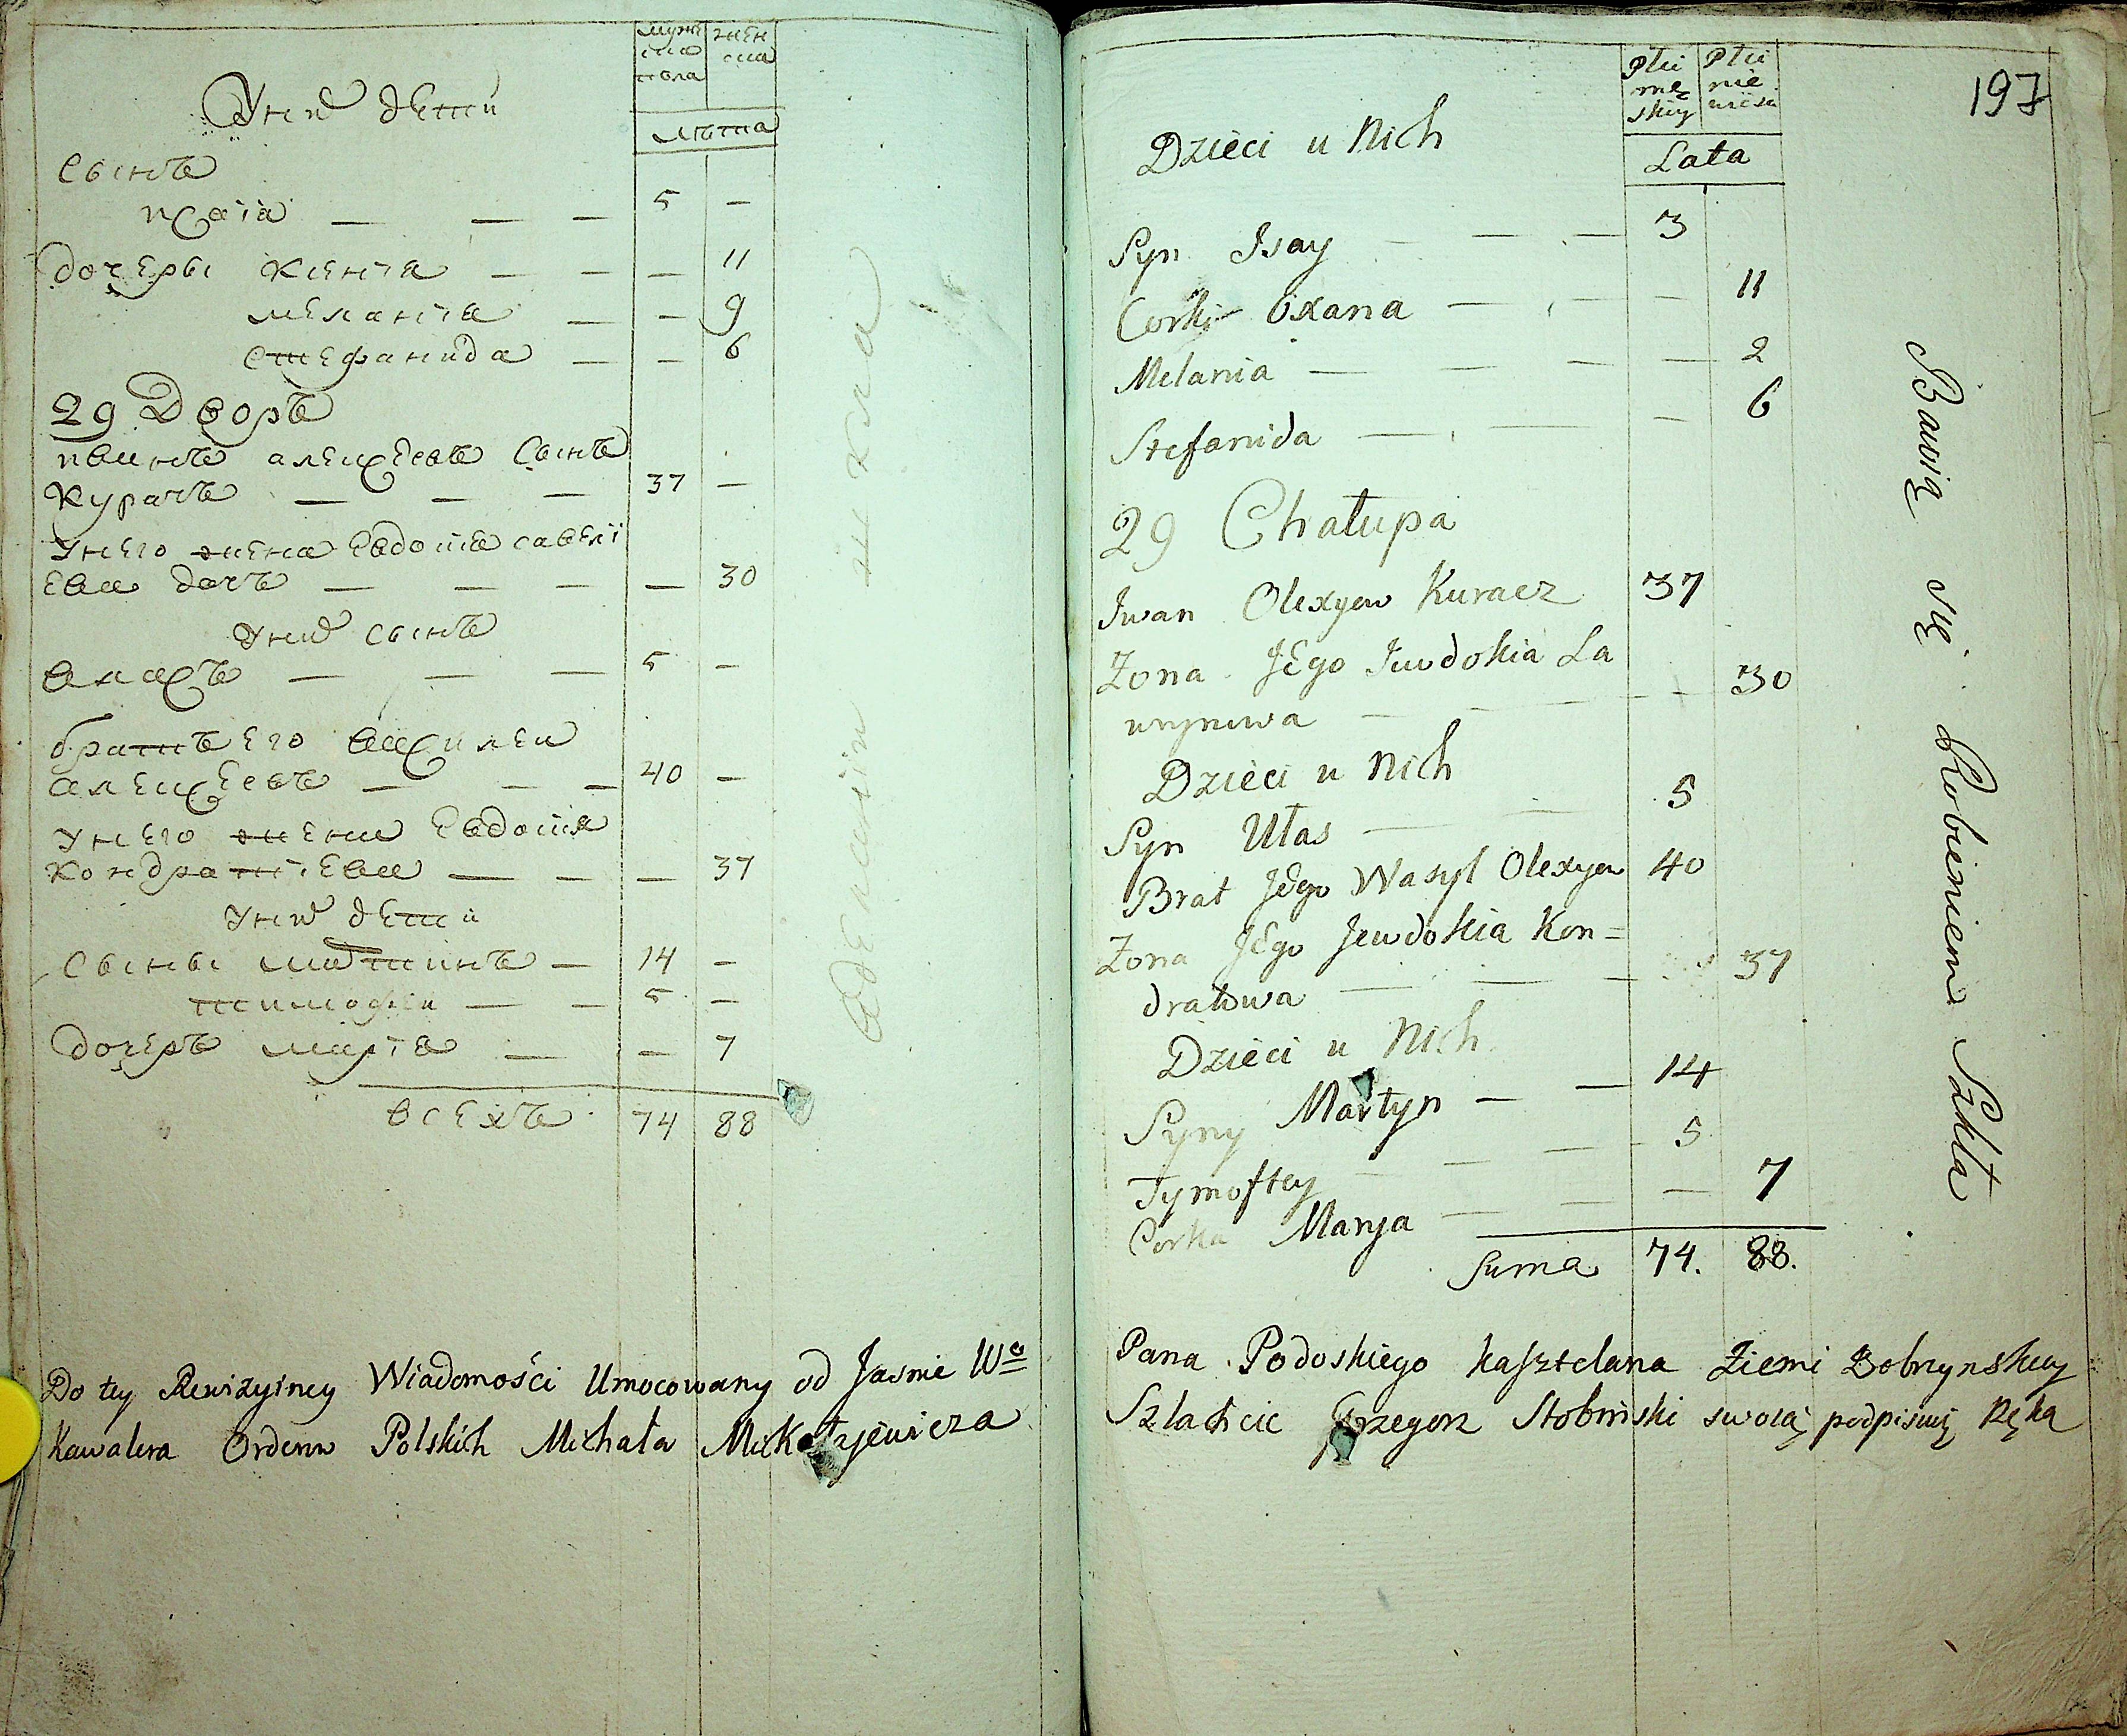 мужеска пола
женска
Унихъ дети
лѣта
Сынъ
исаіа — — — 5 —
дочеры ксенія — — — 11
меланія — — 9
стефанида — — 6
29 Дворъ
иванъ алексеевъ сынъ
курачъ — — — 37 —
Унего жена Евдокия савелі
ева дочъ — — — — 30
Унихъ сынъ
власъ — — — 5 —
братъ его василеи
алексеевъ — — — 40 —
Унего жена Евдокия
кондратіева — — — 37
Унихъ дети
сыны мартинъ — 14 —
тимофеи — — 5 —
дочеръ марія — — 7
всехъ 74 88
Do tey Rewizyiney Wiadomości Umocowany od Jasnie Wo
Kawalera Orderow Polskich Michała
197
Płci męskiey
Płci
Dzieci u Nich
Lata
Syn Isay — — — 3
Corki Oxana — — — 11
Melania — — — — 2
Stefanida — — — 6
29 Chałupa
Iwan Olexyew Kuracz 37
Zona Jego Iewdokia Ła
wrynowa — — — — 30
Dzieci u Nich
Syn Ułas — — 5
Brat Jego Wasyl Olexyew 40
Zona Jego Jewdokia Kon=
dratowa — — — 37
Dzieci u Nich
Syny Martyn — — 14
Tymoftey — — — 5
Corka Marya — — — 7
Suma 74. 88.
Pana Podoskiego kasztelana Ziemi Dobrzynskiey
Szlachcic Grzegorz Stobiński swoią podpisuię Ręką
Bawią się Robieniem Szkła